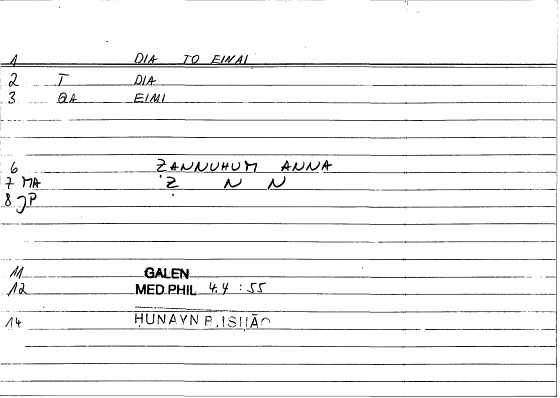 1 DIA TO EINAI
2 T DIA
3 QA EIMI
6 ẒANNUHUM ANNA
7 MA Ẓ N N
8 JP
11 GALEN
12 MED.PHIL 4.4 : 55
14 ḤUNAYN B.ISḤĀQ